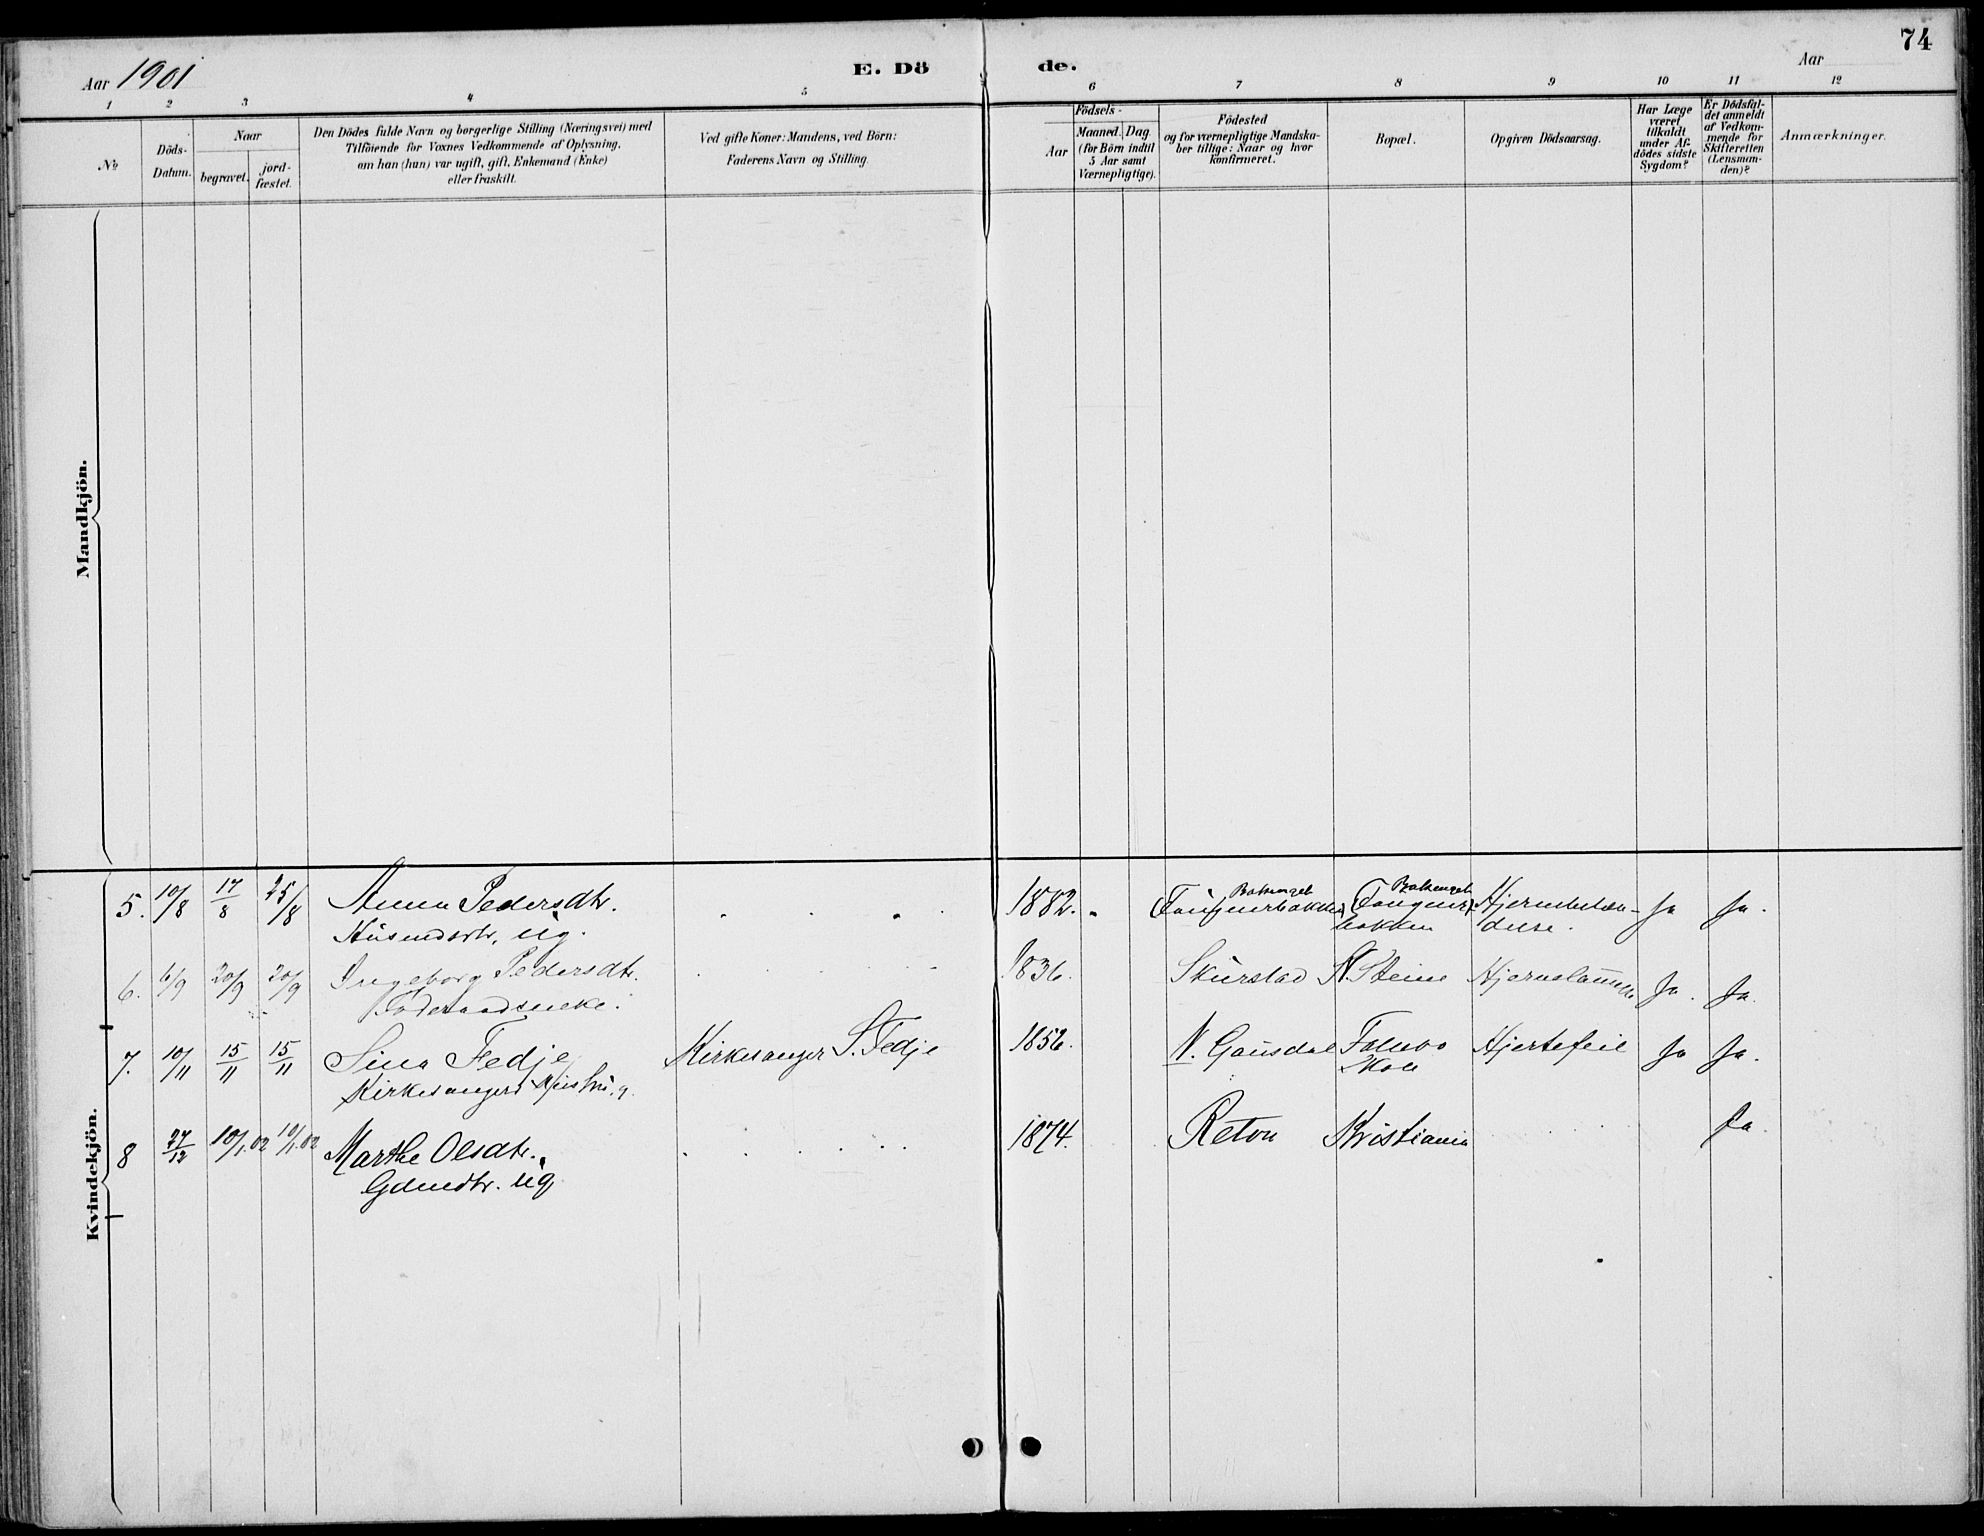 74
Aar 1901
E. Dö
de.
Aar
1 2 3 4 5 6 7 8 9 10 11 12
№
Döds-
Datum.
Naar
begravet.
jord-
fæstet.
Den Dödes fulde Navn og borgerlige Stilling (Næringsvei) med
Tilföiende for Voxnes Vedkommende af Oplysning,
om han (hun) var ugift, gift, Enkemand (Enke)
eller fraskilt.
Ved gifte Koner: Mandens, ved Börn:
Faderens Navn og Stilling.
Födsels-
Aar
Maaned. Dag
(for Börn indtil
5 Aar samt
Værnepligtige).
Födested
og for værnepligtige Mandska-
ber tillige: Naar og hvor
konfirmeret.
Bopæl.
Opgiven Dödsaarsag.
Har Læge
været
tilkaldt
under Af-
dödes sidste
Sygdom?
Er Dödsfal-
det anmeldt
af Vedkom-
mende for
Skifteretten
(Lensman-
den)?
Anmærkninger.
Mandkjön.
Kvindekjön.
5. 10/8 17/8 25/8 Anna Pedersdtr. 1882. Hjernebetæn- Ja Ja.
Husmdsdtr, ug. bakken delse.
6. 6/9 20/9 20/9 Ingeborg Pedersdtr. 1836. Skurstad N. Steine Ja. Ja.
Föderaadsenke.
7. 10/11 15/11 15/11 Sina Fedje Kirkesanger S. Fedje 1856. N. Gausdal Follebo Hjertefeil Ja Ja.
Kirkesangers Hustru, g. Skole
8 27/12 10/1.02 10/1.02 Marthe Olsdtr. 1874. Reton Kristiania Ja.
Gdmdtr. ug